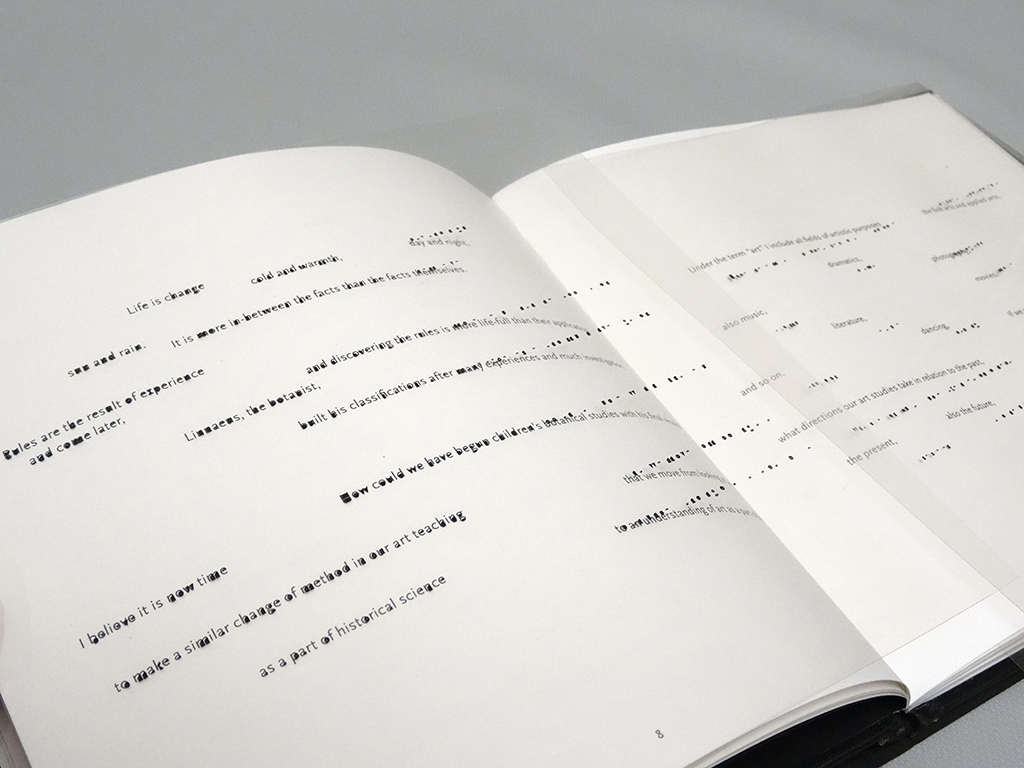 day and night,
cold and warmth,
Life is change
It is more in-between the facts than the facts themselves.
sun and rain.
and discovering the rules is more life-full than their application
Rules are the result of experience
and come later,
built his classifications after many experiences and much investigation
Linnaeus, the botanist,
How could we have begun children's botanical studies with his final
that we move from looking
to an understanding of art as a
I believe it is now time
to make a similar change of method in our art teaching
as a part of historical science
8
the fine arts and applied arts,
Under the term "art" I include all fields of artistic purposes
dramatics,
also music,
literature,
dancing,
and so on.
what directions our art studies take in relation to the past,
also the future,
the present,